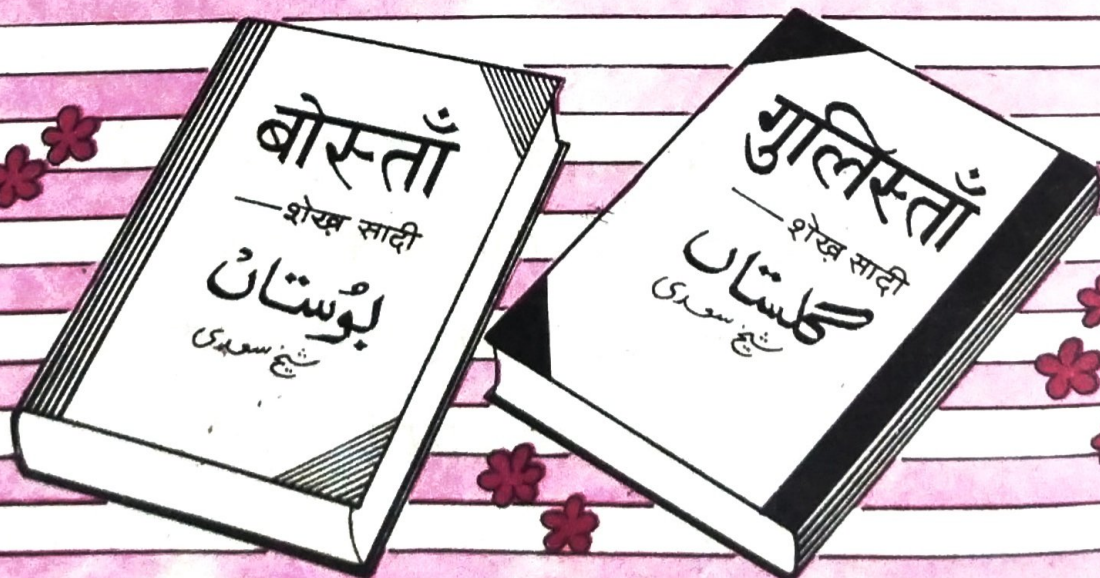 बोस्ताँ
—शेख़ सादी
بُوستان
شیخ سعدی
गुलिस्ताँ
—शेख़ सादी
گلستاں
شیخ سعدی